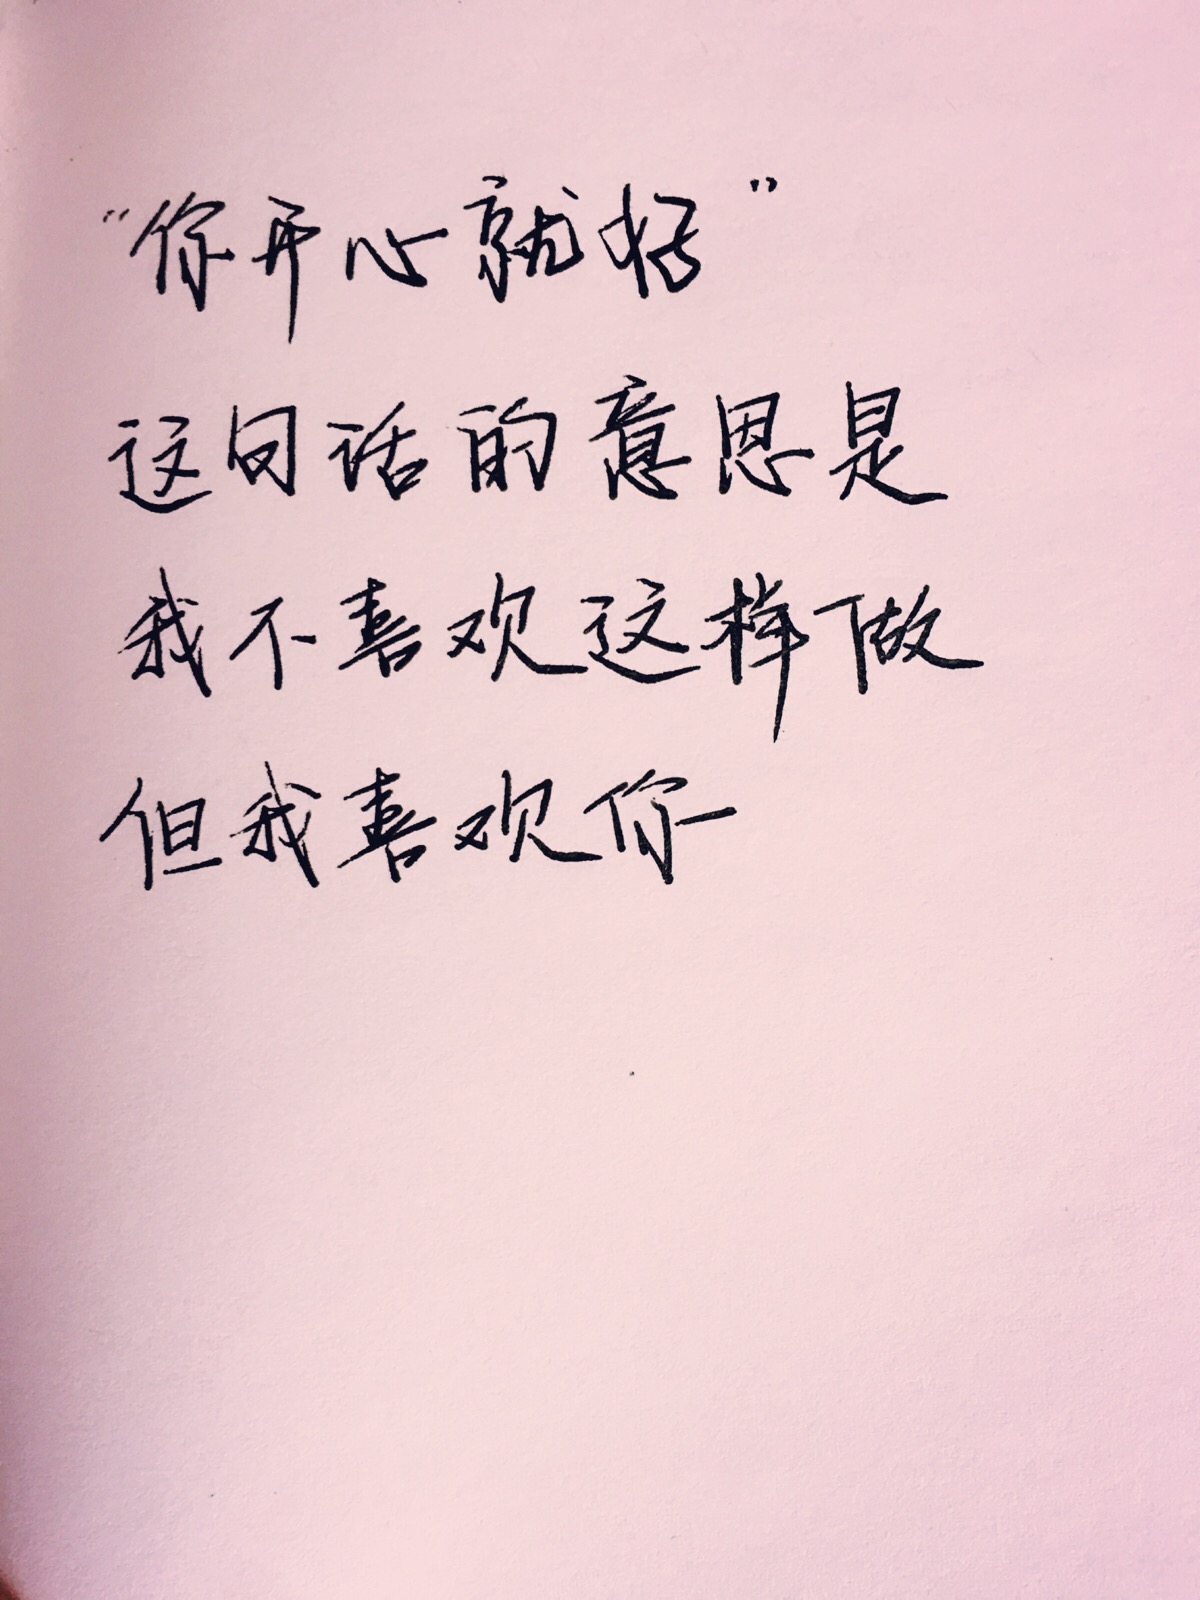 “你开心就好”
这句话的意思是
我不喜欢这样做
但我喜欢你